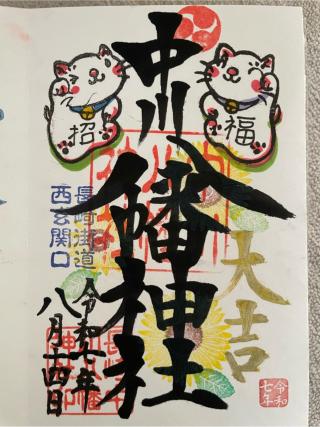 中川八幡神社
招
福
大吉
長崎街道
西玄関口
令和七年
八月十四日
令和
七年